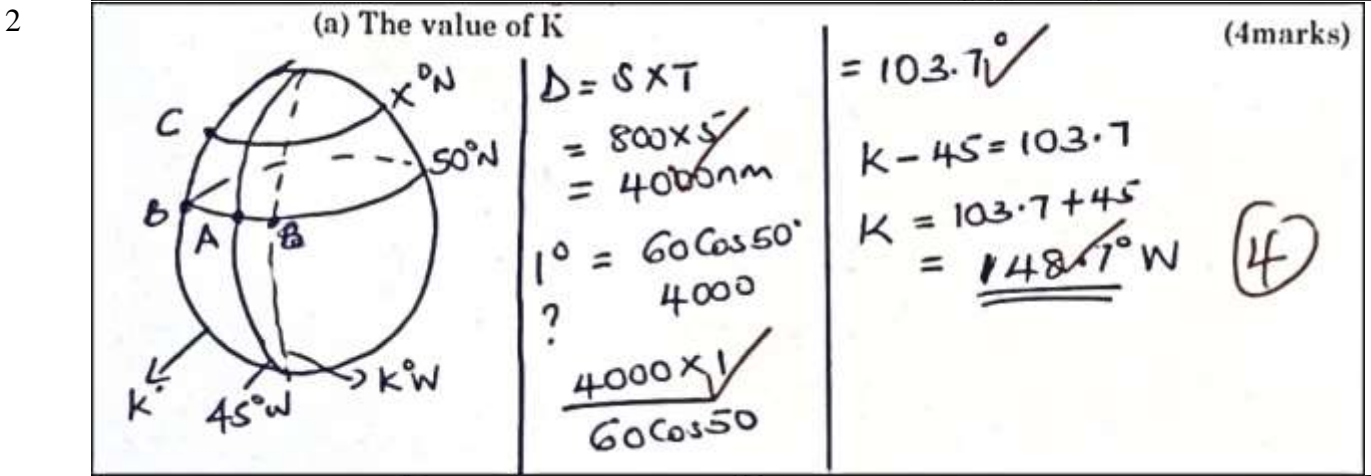 2
(a) The value of K
(4marks)
x°N
C
50°N
B
A
B
K°
45°W
K°W
D = S X T
= 800 x 5
= 4000nm
1° = 60 Cos 50°
? 4000
4000 x 1
60 Cos 50
= 103.7°
K - 45 = 103.7
K = 103.7 + 45
= 148.7° W
4